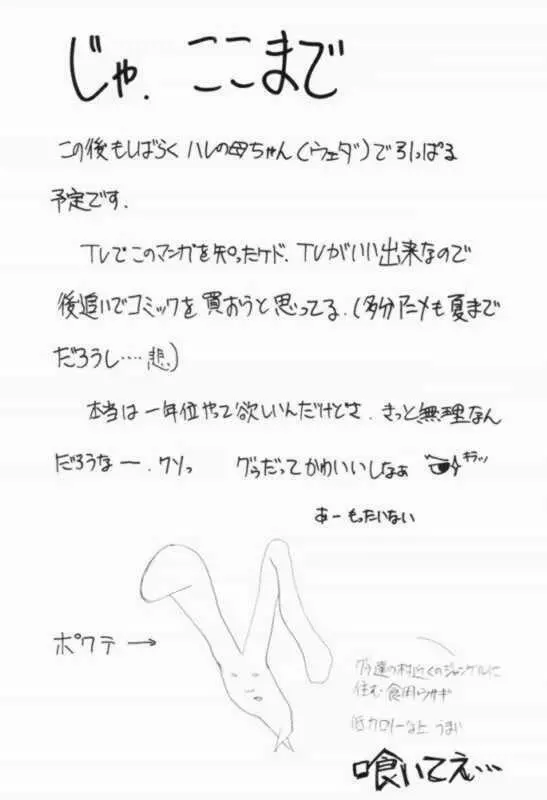 じゃ、ここまで
この後もしばらくハレの母ちゃん(ウェダ)で引っぱる
予定です.
TVでこのマンガを知ったケド、TVがいい出来なので
後追いでコミックを買おうと思ってる.(多分アニメも夏まで
だろうし‥‥悲)
本当は一年位やって欲しいんだけどさ、きっと無理なん
だろうなー、クソっ グゥだってかわいいしなぁ キラッ
あーもったいない
ポクテ→
グゥ達の村近くのジャングルに
住む食用ウサギ
低カロリーな上うまい
喰いてえ…